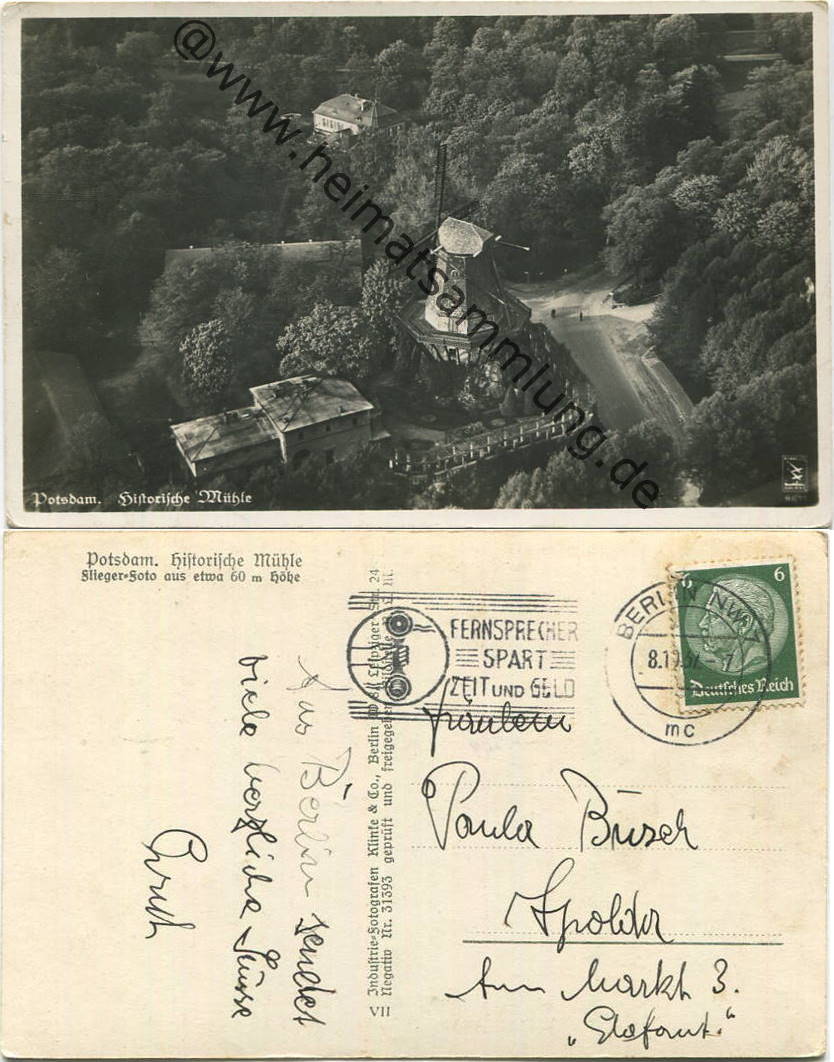 @www.heimatsammlung.de
Potsdam. Historische Mühle
Potsdam. Historische Mühle
Flieger-Foto aus etwa 60 m Höhe
6 6
Deutsches Reich
BERLIN NW 7
8.10.37.-7
mc
FERNSPRECHER
SPART
ZEIT UND GELD
Aus Berlin sendet
viele herzliche Grüsse
Ernst
Industrie-Fotografen Klinke & Co., Berlin W 8, Leipziger Str. 24
Negativ Nr. 31393 geprüft und freigegeben
VII
Fräulein
Paula Büsch
Apolda
Am Markt 3.
„Elefant."